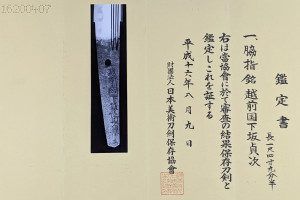 鑑定書
一、脇指 銘 越前国下坂貞次
長一尺四寸九分半
右は當協會に於て審査の結果保存刀剣と
鑑定しこれを証する
平成十六年八月九日
財團法人日本美術刀剣保存協會
16200407